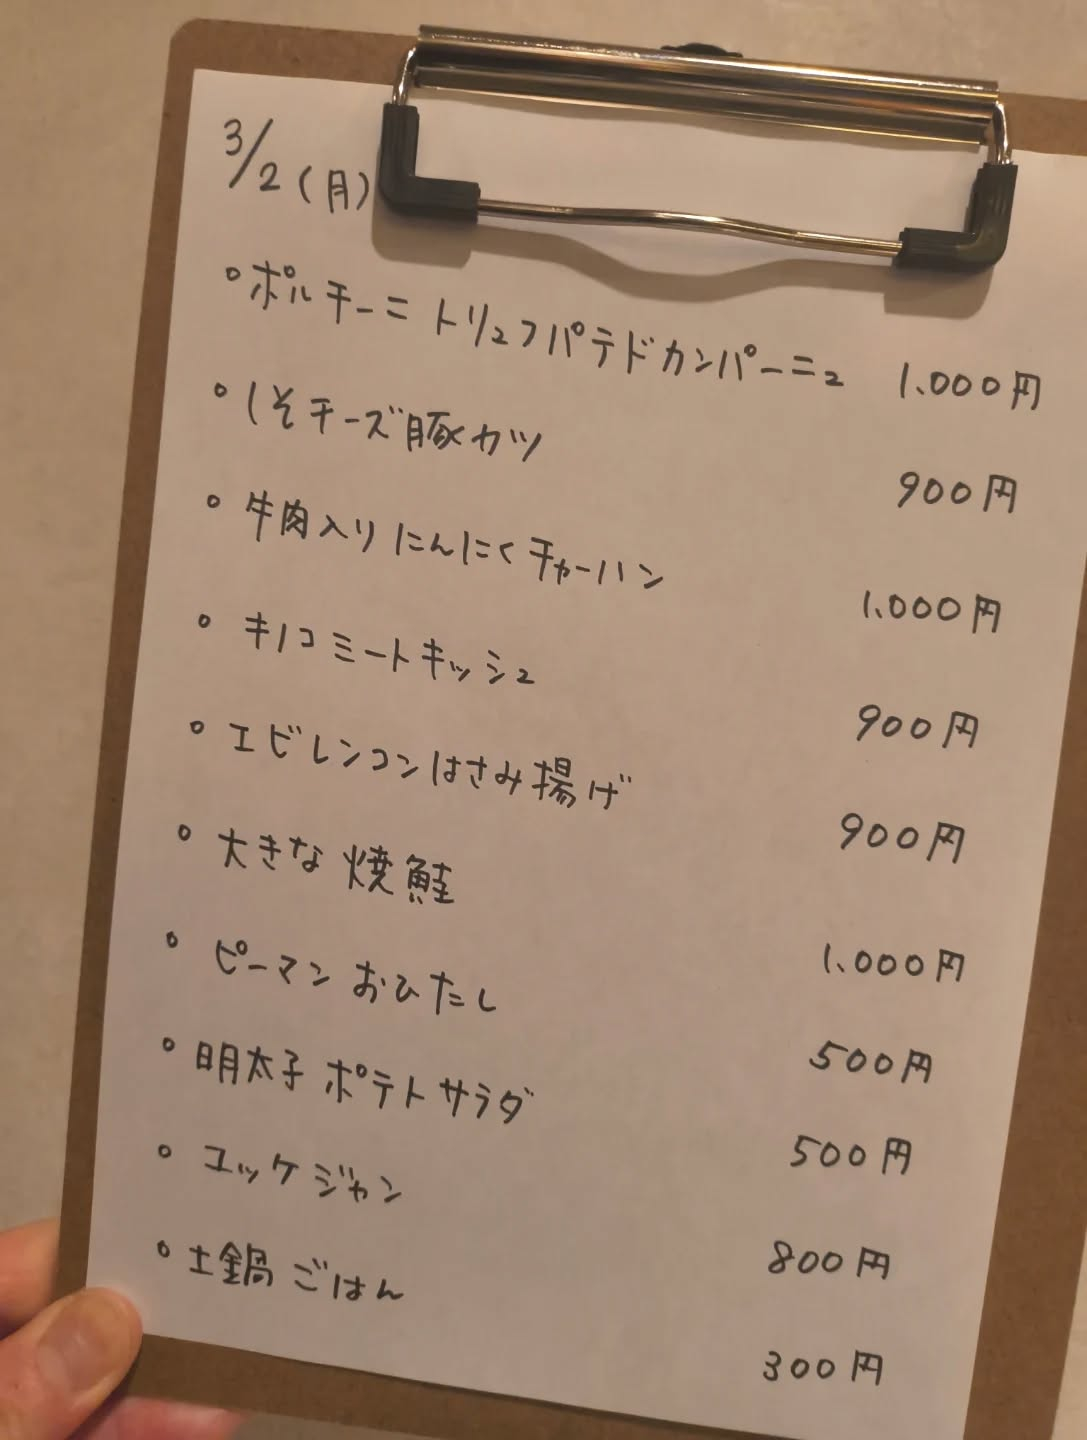 3/2(月)
°ポルチーニ トリュフパテドカンパーニュ 1.000円
°しそチーズ豚カツ 900円
°牛肉入りにんにくチャーハン 1.000円
°キノコミートキッシュ 900円
°エビレンコンはさみ揚げ 900円
°大きな焼鮭 1.000円
°ピーマン おひたし 500円
°明太子 ポテトサラダ 500円
°ユッケジャン 800円
°土鍋ごはん 300円